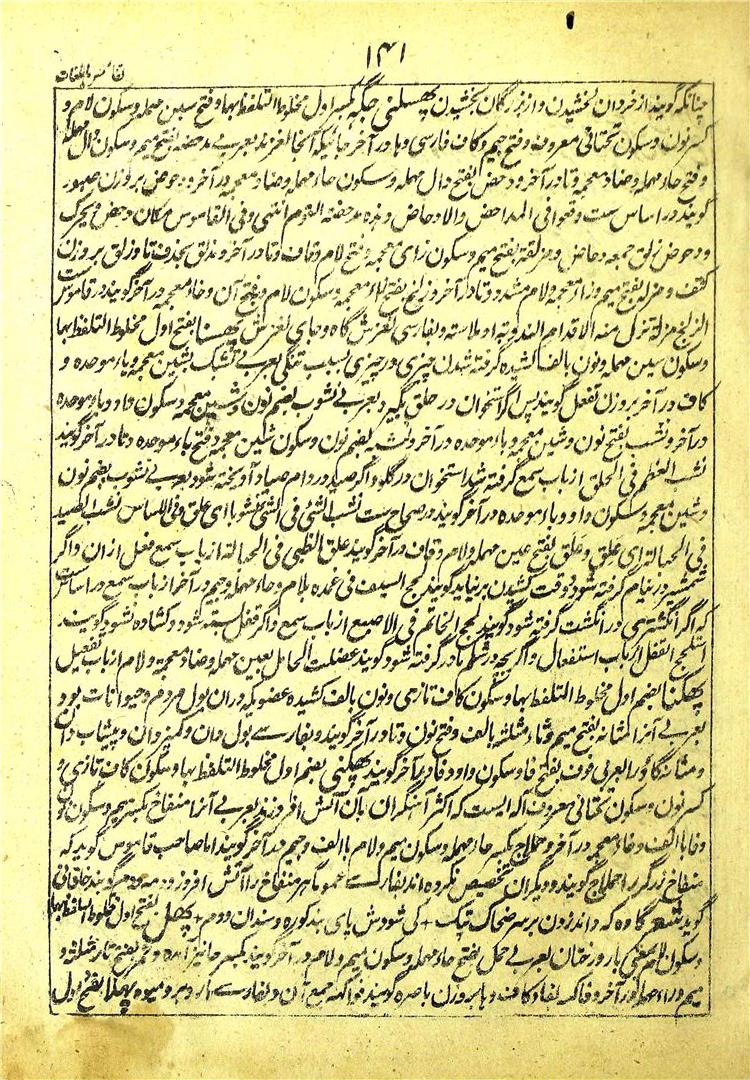 ۱۴۱
نفائس اللغات
چنانکه گویند از خردان لخشیدن و از بزرگان بخشیدن پھسلنی جگہ بکسر اول مخلوط التلفظ بہا و فتح سین مہملہ و سکون لام و
کسر نون و سکون تحتانی معروف و فتح جیم و کاف فارسی و ہا در آخر جائیکہ آنجا لغزند بعربی مدحضہ بفتح میم و سکون دال مہملہ
و فتح حاء مہملہ و ضاد معجمہ و تا در آخر و دحض بفتح دال مہملہ و سکون حاء مہملہ و ضاد معجمہ در آخر و دحوض بر وزن صبور
گویند در اساس ست وقعوا فی المداحض والادحاض و ہذہ مدحضة القوم انتہی و فی القاموس مکان دحض و یحرک
و دحوض زلق جمعہ دحاض و مزلقہ بفتح میم و سکون زای معجمہ و فتح لام و قاف و تا در آخر و مزلق بحذف تا و زلق بر وزن
کتف و مزلہ بفتح میم و زاء معجمہ و لام مشدد و تا در آخر و زلخ بفتح زاء معجمہ و سکون لام و فتح آن و خاء معجمہ در آخر گویند در قاموس ست
الزلخ مزلة تزل منه الاقدام لندوته او ملاسته و بفارسی لغزش گاہ و جای لغزش پھنسنا بفتح اول مخلوط التلفظ بہا
و سکون سین مہملہ و نون بالف کشیدہ گرفتہ شدن چیزی در چیزی بسبب تنگی بعربی تشبک بشین معجمہ و باء موحدہ و
کاف در آخر بر وزن تفعل گویند پس اگر استخوان در حلق بگیرد بعربی نشوب بضم نون و شین معجمہ و سکون واو و باء موحدہ
در آخر و نشب بفتح نون و شین معجمہ و باء موحدہ در آخر و نشبہ بضم نون و سکون شین معجمہ و فتح باء موحدہ و تا در آخر گویند
نشب العظم فی الحلق از باب سمع گرفتہ شد استخوان در گلو و اگر صید در دام صیاد آویختہ شود بعربی نشوب بضم نون
و شین معجمہ و سکون واو و باء موحدہ در آخر گویند در صحاح ست نشب الشئ فی الشئ نشوبا ای علق و فی الاساس نشب الصید
فی الحبالة ای علق و علق بفتح عین مہملہ و لام و قاف در آخر گویند علق الظبی فی الحبالة از باب سمع فعل ازان و اگر
شمشیر در نیام گرفتہ شود و وقت کشیدن بر نیاید گویند لحج السیف فی غمدہ بلام و حاء مہملہ و جیم در آخر از باب سمع در اساس ست
کہ اگر انگشتری در انگشت گرفتہ شود گویند لحج الخاتم فی الاصبع از باب سمع و اگر قفل بستہ شود و کشادہ نشود گویند
استلحج القفل از باب استفعال و اگر بچہ در شکم مادر گرفتہ شود گویند عضلت الحامل بعین مہملہ و ضاد معجمہ و لام از باب تفعیل
پھکنا بضم اول مخلوط التلفظ بہا و سکون کاف تازی و نون بالف کشیدہ عضویکہ دران بول مردم و حیوانات بود
بعربی آنرا مثانہ بفتح میم و ثاء مثلثہ بالف و فتح نون و تا در آخر گویند و بفارسے بول دان و کمیزدان و پیشاب دان
و مثانہ گاو را بعربی فوف بفتح فا و سکون واو و فا در آخر گویند پھکنی بضم اول مخلوط التلفظ بہا و سکون کاف تازی و
کسر نون و سکون تحتانی معروف آلہ ایست کہ اکثر آہنگران بآن آتش افروزند بعربی آنرا منفاخ بکسر میم و سکون نون
و فا بالف و خاء معجمہ در آخر و حملاج بکسر حاء مہملہ و سکون میم و لام بالف و جیم در آخر گویند اما صاحب قاموس گوید کہ
منفاخ زرگر را حملاج گویند و دیگران تخصیص نکردہ اند بفارسے عموماً ہر منفاخ را آتش افروز و دمہ و دم گویند خاقانی
گوید شعر گاوہ کہ داند زدن بر سر ضحاک پتک + کی شودش پای بند کورہ و سندان و دم + پھل بفتح اول مخلوط التلفظ بہا
و سکون لام بمعنی بار درختان بعربی حمل بفتح حاء مہملہ و سکون میم و لام در آخر گویند و بکسر حا نیز آمدہ و ثمر بفتح ثاء مثلثہ و
میم و راء مہملہ در آخر و فاکہہ بفا و کاف و ہا بر وزن باصرہ گویند فواکہ جمع آن و بفارسے بار و بر و میوہ پھلانا بفتح اول